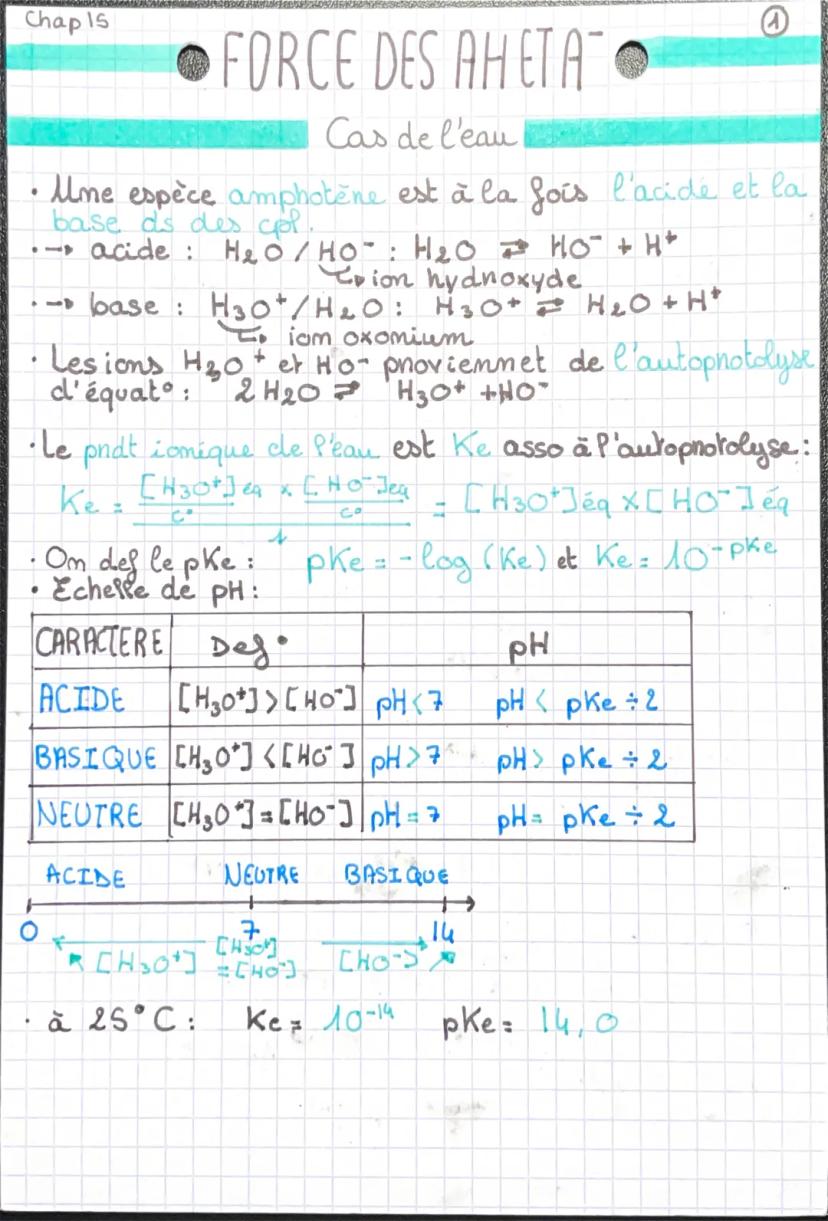 Chap 15
1
FORCE DES AH ET A⁻
Cas de l'eau
· Une espèce amphotère est à la fois l'acide et la
base ds des cpl.
· → acide : H₂O / HO⁻ : H₂O ⇄ HO⁻ + H⁺
↳ ion hydroxyde
· → base : H₃O⁺/H₂O : H₃O⁺ ⇄ H₂O + H⁺
↳ ion oxonium
· Les ions H₃O⁺ et HO⁻ proviennet de l'autoprotolyse
d'équat° : 2 H₂O ⇄ H₃O⁺ + HO⁻
· Le prdt ionique de l'eau est Ke asso à l'autoprotolyse :
Ke = [H₃O⁺]éq/c° × [HO⁻]éq/c° / 1 = [H₃O⁺]éq × [HO⁻]éq
· On def le pKe : pKe = -log (Ke) et Ke = 10^-pKe
· Echelle de pH :
CARACTERE Def° pH
ACIDE [H₃O⁺] > [HO⁻] pH < 7 pH < pKe ÷ 2
BASIQUE [H₃O⁺] < [HO⁻] pH > 7 pH > pKe ÷ 2
NEUTRE [H₃O⁺] = [HO⁻] pH = 7 pH = pKe ÷ 2
ACIDE NEUTRE BASIQUE
0 7 14
↖ [H₃O⁺] [H₃O⁺] = [HO⁻] [HO⁻] ↗
· à 25°C : Ke = 10⁻¹⁴ pKe = 14,0